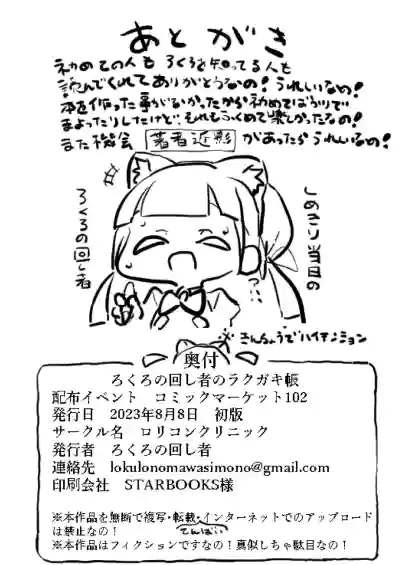 あとがき
初めての人も ろくろを知ってる人も
読んでくれて ありがとうなの！うれしいなの！
本を作った事がなかったから初めてばかりで
まよったりしたけど、それもふくめて楽しかったなの！
また機会があったらうれしいなの！
著者近影
しめきり当日の
ろくろの回し者
※きんちょうでハイテンション
奥付
ろくろの回し者のラクガキ帳
配布イベント コミックマーケット102
発行日 2023年8月8日 初版
サークル名 ロリコンクリニック
発行者 ろくろの回し者
連絡先 lokulonomawasimono@gmail.com
印刷会社 STARBOOKS様
※本作品を無断で複写・転載・インターネットでのアップロード
は禁止なの！
てんばい
※本作品はフィクションですなの！真似しちゃ駄目なの！